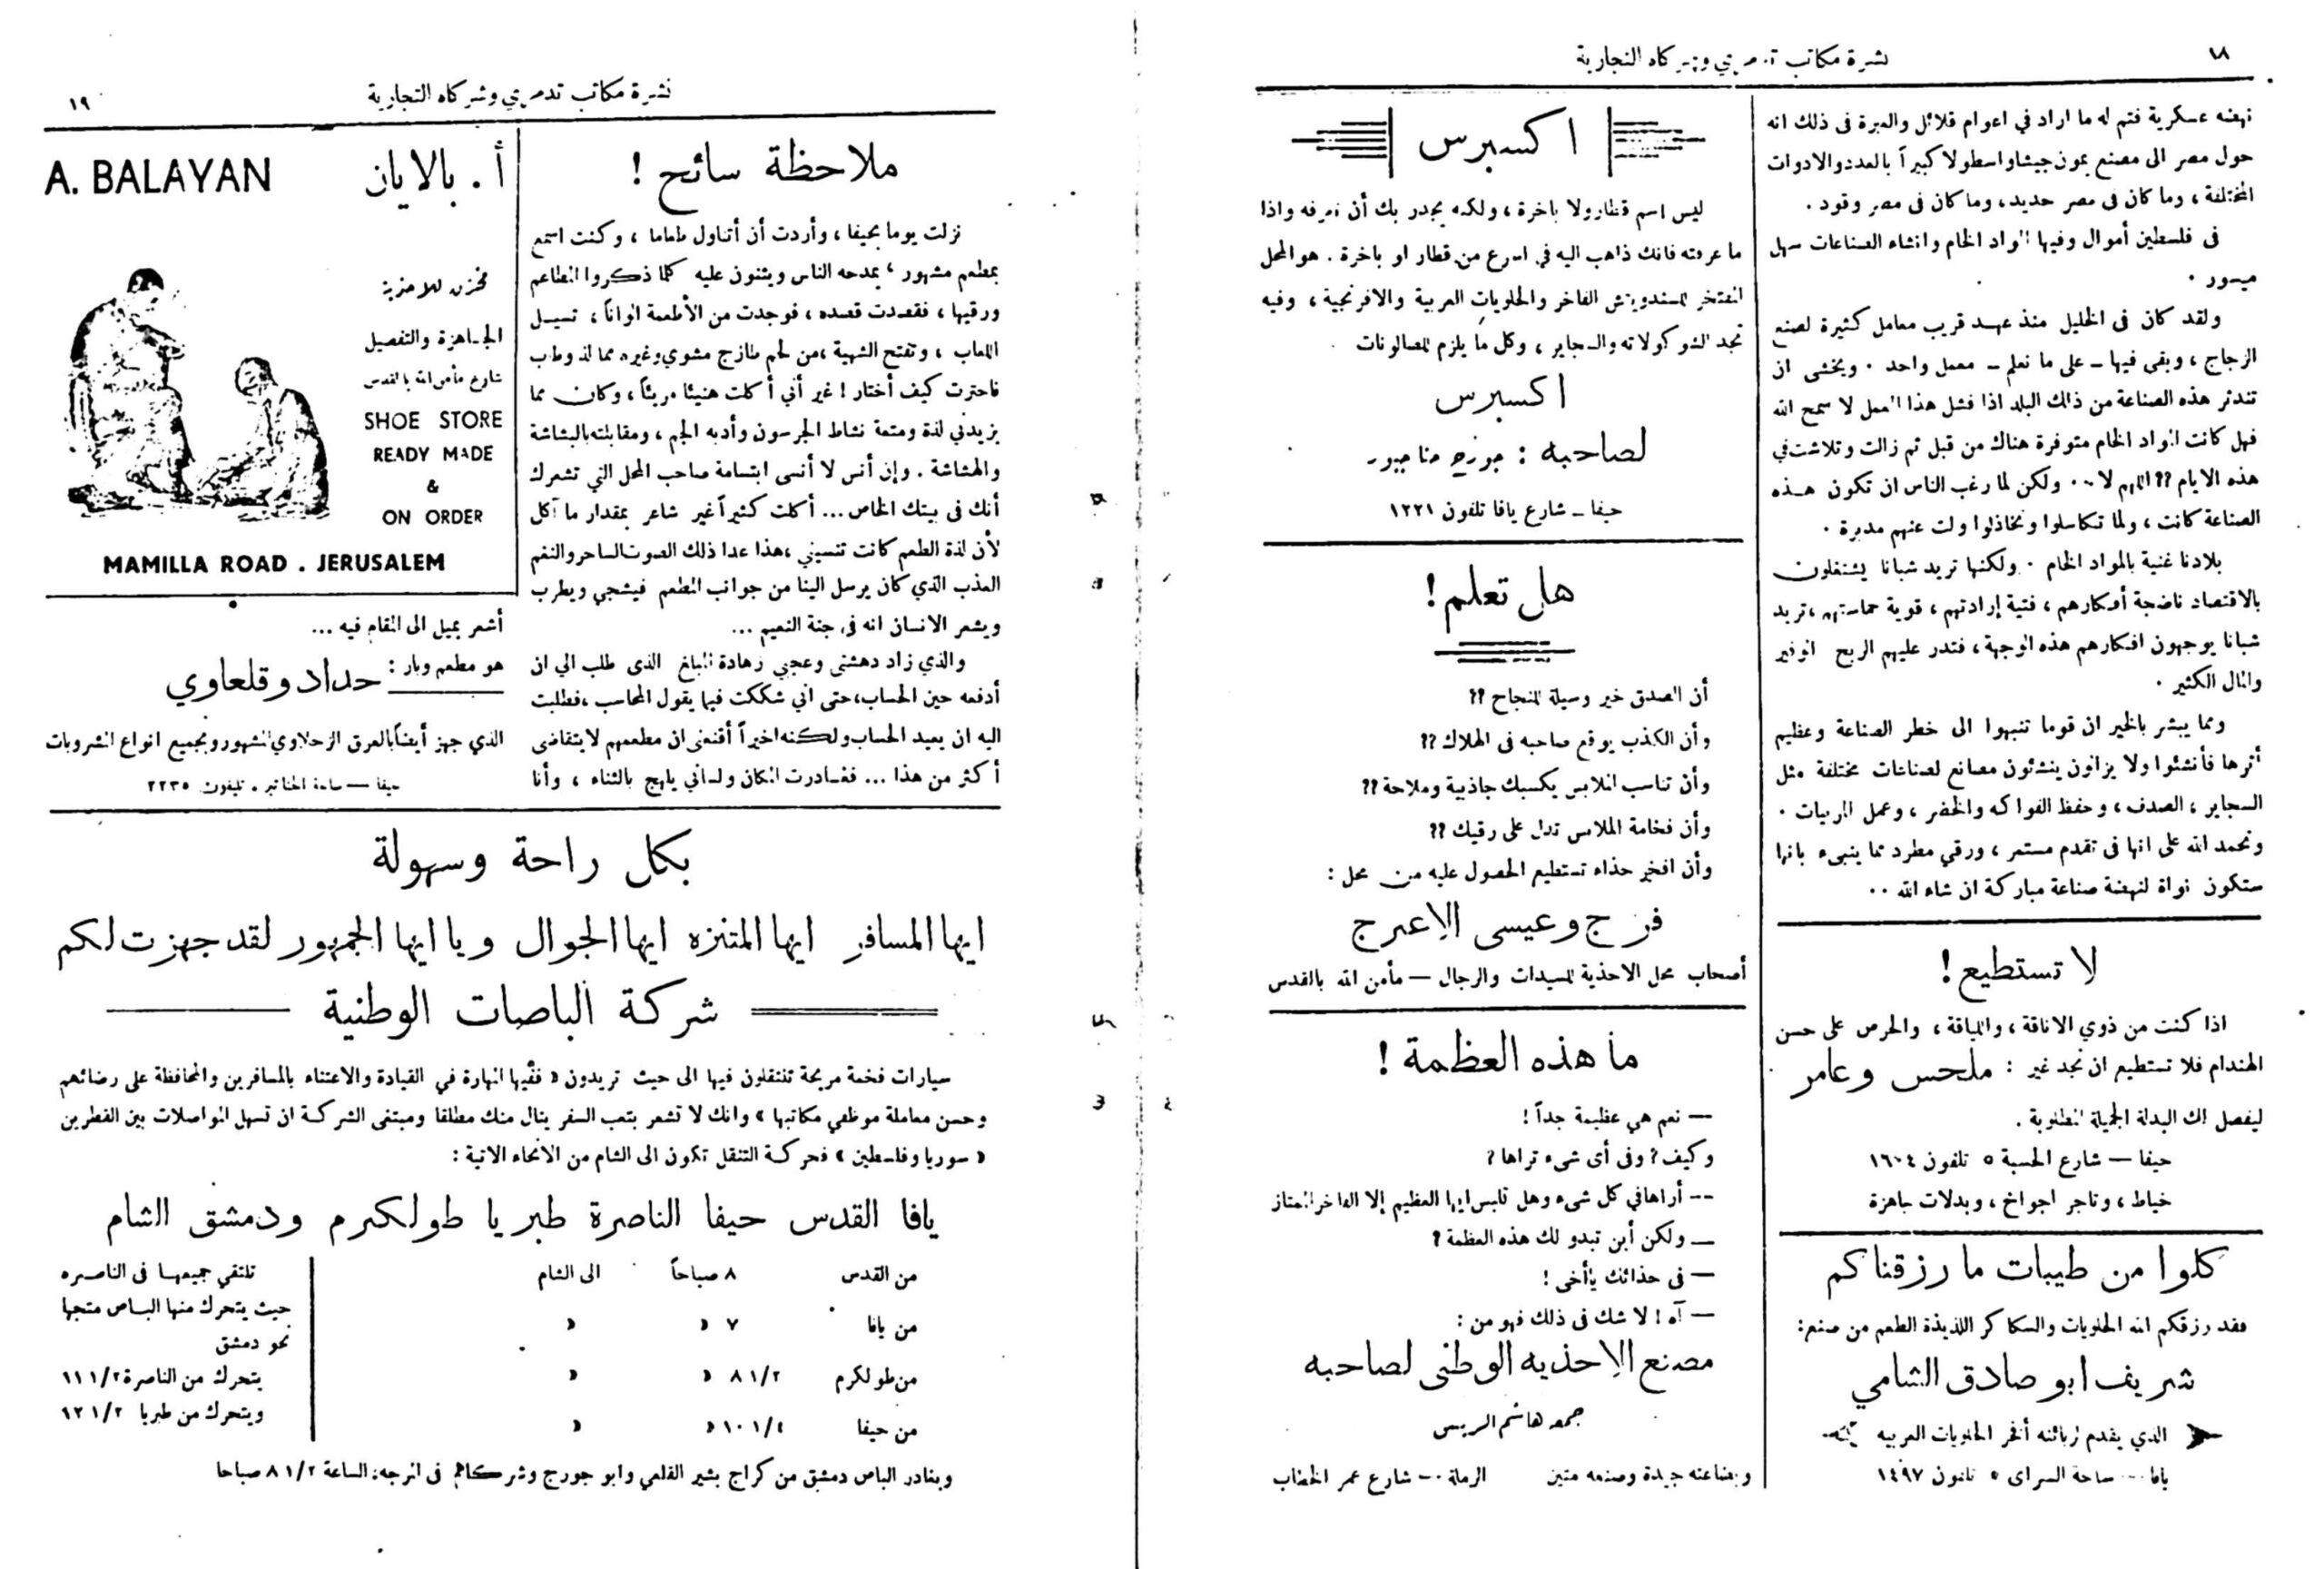 ١٨
نشرة مكاتب تدمري وشركاه التجارية
نهضه عسكرية فتم له ما اراد في اعوام قلائل والعبرة فى ذلك انه
حول مصر الى مصنع يمون جيشا واسطولا كبيراً بالعدد والادوات
المختلفة ، وما كان فى مصر حديد، وما كان فى مصر وقود .
فى فلسطين أموال وفيها المواد الخام وانشاء الصناعات سهل
ميسور .
ولقد كان فى الخليل منذ عهد قريب معامل كثيرة لصنع
الزجاج ، وبقى فيها - على ما نعلم - معمل واحد . ويخشى ان
تندثر هذه الصناعة من ذلك البلد اذا فشل هذا المعمل لا سمح الله
فهل كانت المواد الخام متوفرة هناك من قبل ثم زالت وتلاشت في
هذه الايام ؟؟ اللهم لا .. ولكن لما رغب الناس ان تكون هذه
الصناعة كانت ، ولما تكاسلوا وتخاذلوا ولت عنهم مدبرة .
بلادنا غنية بالمواد الخام . ولكنها تريد شبانا يشتغلون
بالاقتصاد ناضجة أفكارهم ، فتية إرادتهم ، قوية حماستهم ، تريد
شبانا يوجهون افكارهم هذه الوجهة ، فتدر عليهم الربح الوفير
والمال الكثير .
ومما يبشر بالخير ان قوما تنبهوا الى خطر الصناعة وعظيم
أثرها فأنشئوا ولا يزالون ينشئون مصانع لصناعات مختلفة مثل
السجاير ، الصدف ، وحفظ الفواكه والخضر ، وعمل المربيات .
ونحمد الله على انها فى تقدم مستمر ، ورقي مطرد مما ينبىء بانها
ستكون نواة لنهضة صناعة مباركة ان شاء الله ..
لا تستطيع !
اذا كنت من ذوي الاناقة ، واللياقة ، والحرص على حسن
الهندام فلا تستطيع ان تجد غير : ملحس وعامر
ليفصل لك البدلة الجميلة المطلوبة .
حيفا — شارع الحسبة ٥ تلفون ١٦٠٤
خياط ، وتاجر اجواخ ، وبدلات جاهزة
كلوا من طيبات ما رزقناكم
فقد رزقكم الله الحلويات والسكاكر اللذيذة الطعم من صنع:
شريف ابو صادق الشامي
الذي يقدم لزبائنه أفخر الحلويات العربيه
يافا — ساحة السراى ٥ تلفون ١٤٩٧
اكسبرس
ليس اسم قطار ولا باخرة ، ولكنه يجدر بك أن تعرفه واذا
ما عرفته فانك ذاهب اليه في اسرع من قطار او باخرة . هو المحل
المفتخر للسندويش الفاخر والحلويات العربية والافرنجية ، وفيه
تجد الشوكولاته والسجاير ، وكل ما يلزم للصالونات
اكسبرس
لصاحبه : جورج حنا جبور
حيفا - شارع يافا تلفون ١٢٢١
هل تعلم !
أن الصدق خير وسيلة للنجاح ؟؟
وأن الكذب يوقع صاحبه فى الهلاك ؟؟
وأن تناسب الملابس يكسبك جاذبية وملاحة ؟؟
وأن فخامة الملابس تدل على رقيك ؟؟
وأن افخر حذاء تستطيع الحصول عليه من محل :
فرج وعيسى الاعرج
أصحاب محل الاحذية للسيدات والرجال — مأمن الله بالقدس
ما هذه العظمة !
— نعم هي عظيمة جداً !
وكيف ؟ وفى أى شىء تراها ؟
-- أراها في كل شىء وهل تلبس ايها العظيم إلا الفاخر الممتاز
— ولكن أين تبدو لك هذه العظمة ؟
— فى حذائك يا أخى !
— آه ! لا شك فى ذلك فهو من :
مصنع الاحذيه الوطنى لصاحبه
جمعه هاشم الريس
وبضاعته جيدة وصنعه متين الرملة -- شارع عمر الخطاب
نشرة مكاتب تدمري وشركاه التجارية
١٩
ملاحظة سائح !
نزلت يوما بحيفا ، وأردت أن أتناول طعاما ، وكنت اسمع
بمطعم مشهور ، يمدحه الناس ويثنون عليه كلما ذكروا المطاعم
ورقيها ، فقصدت قصده ، فوجدت من الأطعمة الواناً ، تسيل
اللعاب ، وتفتح الشهية ، من لحم طازج مشوي وغيره مما لذ وطاب
فاحترت كيف أختار ! غير أني أكلت هنيئا مريئاً ، وكان مما
يزيدني لذة ومتعة نشاط الجرسون وأدبه الجم ، ومقابلته بالبشاشة
والهشاشة . وإن أنس لا أنسى ابتسامة صاحب المحل التي تشعرك
أنك فى بيتك الخاص ... أكلت كثيراً غير شاعر بمقدار ما آكل
لأن لذة الطعم كانت تنسيني ، هذا عدا ذلك الصوت الساحر والنغم
العذب الذي كان يرسل الينا من جوانب المطعم فيشجي ويطرب
ويشعر الانسان انه فى جنة النعيم ...
والذي زاد دهشتى وعجبي زهادة المبلغ الذى طلب الي ان
أدفعه حين الحساب، حتى اني شككت فيما يقول المحاسب ، فطلبت
اليه ان يعيد الحساب ولكنه اخيراً أقنعنى ان مطعمهم لا يتقاضى
أكثر من هذا ... فغادرت المكان ولساني يلهج بالثناء ، وأنا
أشعر بميل الى المقام فيه ...
هو مطعم وبار : حداد وقلعاوي
الذي جهز أيضاً بالعرق الزحلاوي المشهور وبجميع انواع المشروبات
حيفا — ساحة الخناتير . تليفون ٢٢٣٥
أ . بالايان
A. BALAYAN
مخزن للاحذية
الجاهزة والتفصيل
شارع مأمن الله بالقدس
SHOE STORE
READY MADE
&
ON ORDER
MAMILLA ROAD . JERUSALEM
بكل راحة وسهولة
ايها المسافر ايها المتنزه ايها الجوال ويا ايها الجمهور لقد جهزت لكم
شركة الباصات الوطنية
سيارات فخمة مريحة تنتقلون فيها الى حيث تريدون « ففيها المهارة في القيادة والاعتناء بالمسافرين والمحافظة على رضائهم
وحسن معاملة موظفي مكاتبها » وانك لا تشعر بتعب السفر ينال منك مطلقا ومبتغى الشركة ان تسهل المواصلات بين القطرين
« سوريا وفلسطين » فحركة التنقل تكون الى الشام من الانحاء الاتية :
يافا القدس حيفا الناصرة طبريا طولكرم ودمشق الشام
من القدس ٨ صباحاً الى الشام
من يافا ٧ » »
من طولكرم ٨ ١/٢ » »
من حيفا ١٠ ١/٤ » »
تلتقي جميعها فى الناصره
حيث يتحرك منها الباص متجها
نحو دمشق
يتحرك من الناصرة ١١ ١/٢
ويتحرك من طبريا ١٢ ١/٢
ويغادر الباص دمشق من كراج بشير القلعي وابو جورج وشركاهم فى المرجه: الساعة ٨ ١/٢ صباحا